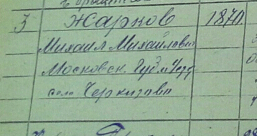 3 Жарнов 1870
Михаил Михайлович
Московск. губ. и уезд
село Черкизово